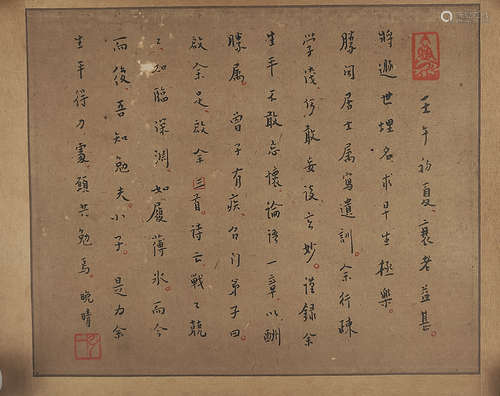 壬午初夏，衰老益甚。
将遯世埋名求早生極樂。
勝聞居士属寫遺訓。余行疎
学淺，何敢妄談玄妙。謹録余
生平不敢忘懷論語一章，以酬
勝属。曾子有疾，召门弟子曰
啟余足啟余三首。诗云戰々兢
々如臨深淵，如履薄氷。而今
而後，吾知勉夫小子。是为余
生平得力處，願共勉焉。晚晴